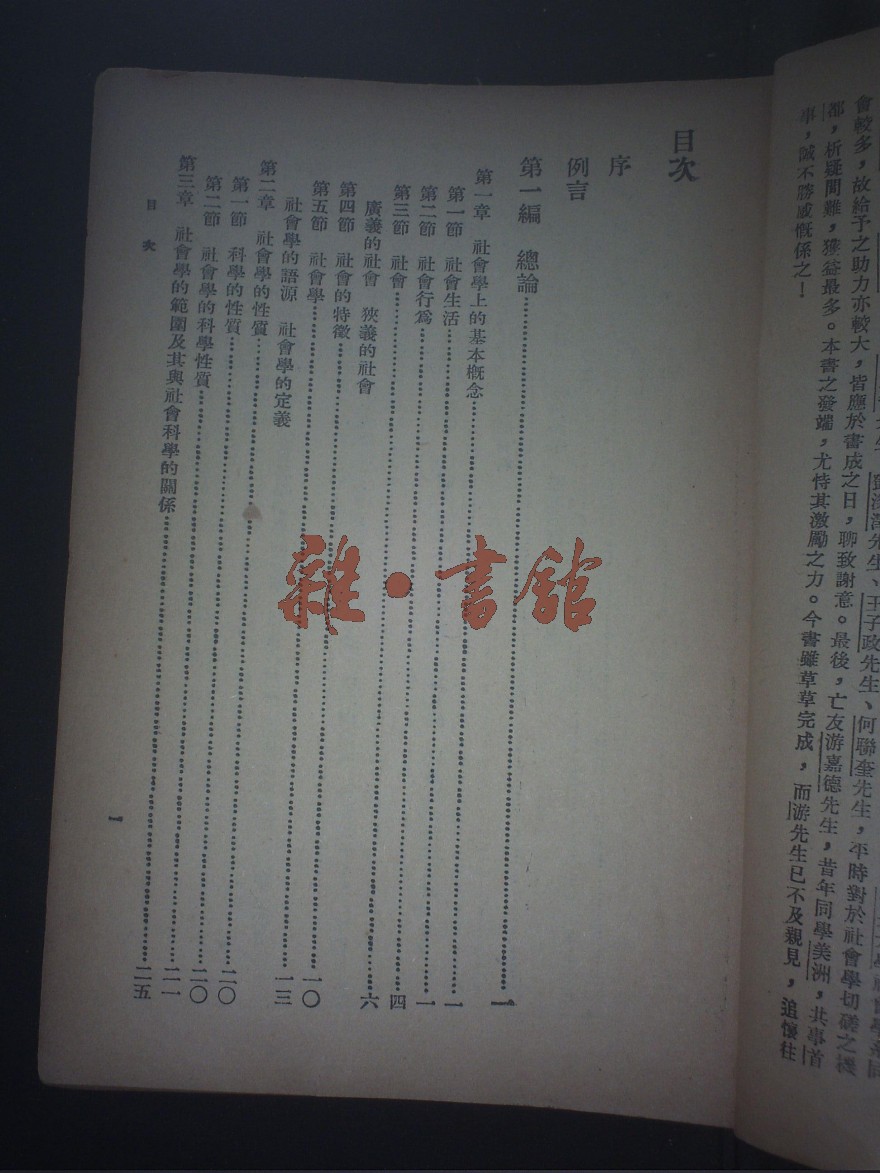 先生、王子政先生、何聯奎先生，平時對於社會學切磋之機
會較多，故給予之助力亦較大，皆應於書成之日，聊致謝意。最後，亡友游嘉德先生，昔年同學美洲，共事首
都，析疑問難，獲益最多。本書之發端，尤恃其激勵之力。今書雖草草完成，而游先生已不及親見，追懷往
事，誠不勝感慨係之！
目次
序
例言
第一編　總論……一
第一章　社會學上的基本概念……一
第一節　社會生活……一
第二節　社會行爲……四
第三節　社會……六
廣義的社會　狹義的社會
第四節　社會的特徵……一〇
第五節　社會學……一三
社會學的語源　社會學的定義
第二章　社會學的性質……二〇
第一節　科學的性質……二〇
第二節　社會學的科學性質……二一
第三章　社會學的範圍及其與社會科學的關係……二五
目次
一
雜·書館